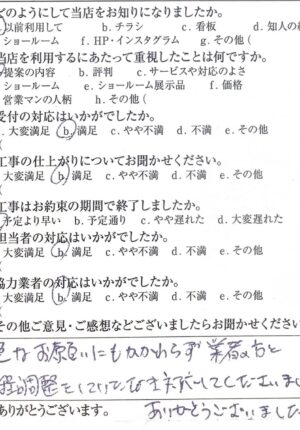 どのようにして当店をお知りになりましたか。
以前利用して　b. チラシ　c. 看板　d. 知人の紹
ショールーム　f. HP・インスタグラム　g. その他（
当店を利用するにあたって重視したことは何ですか。
提案の内容　b. 評判　c. サービスや対応のよさ
ショールーム　e. ショールーム展示品　f. 価格
営業マンの人柄　h. その他（
受付の対応はいかがでしたか。
. 大変満足　b. 満足　c. やや不満　d. 不満　e. その他
（
工事の仕上がりについてお聞かせください。
大変満足　b. 満足　c. やや不満　d. 不満　e. その他
（
工事はお約束の期間で終了しましたか。
予定より早い　b. 予定通り　c. やや遅れた　d. 大変遅れた
担当者の対応はいかがでしたか。
大変満足　b. 満足　c. やや不満　d. 不満　e. その他
（
協力業者の対応はいかがでしたか。
大変満足　b. 満足　c. やや不満　d. 不満　e. その他
（
その他ご意見・ご感想などございましたらお聞かせください
なお願いにもかかわらず業者の方と
調整をしていただき対応してくださいまし
ありがとうございます。　ありがとうございました